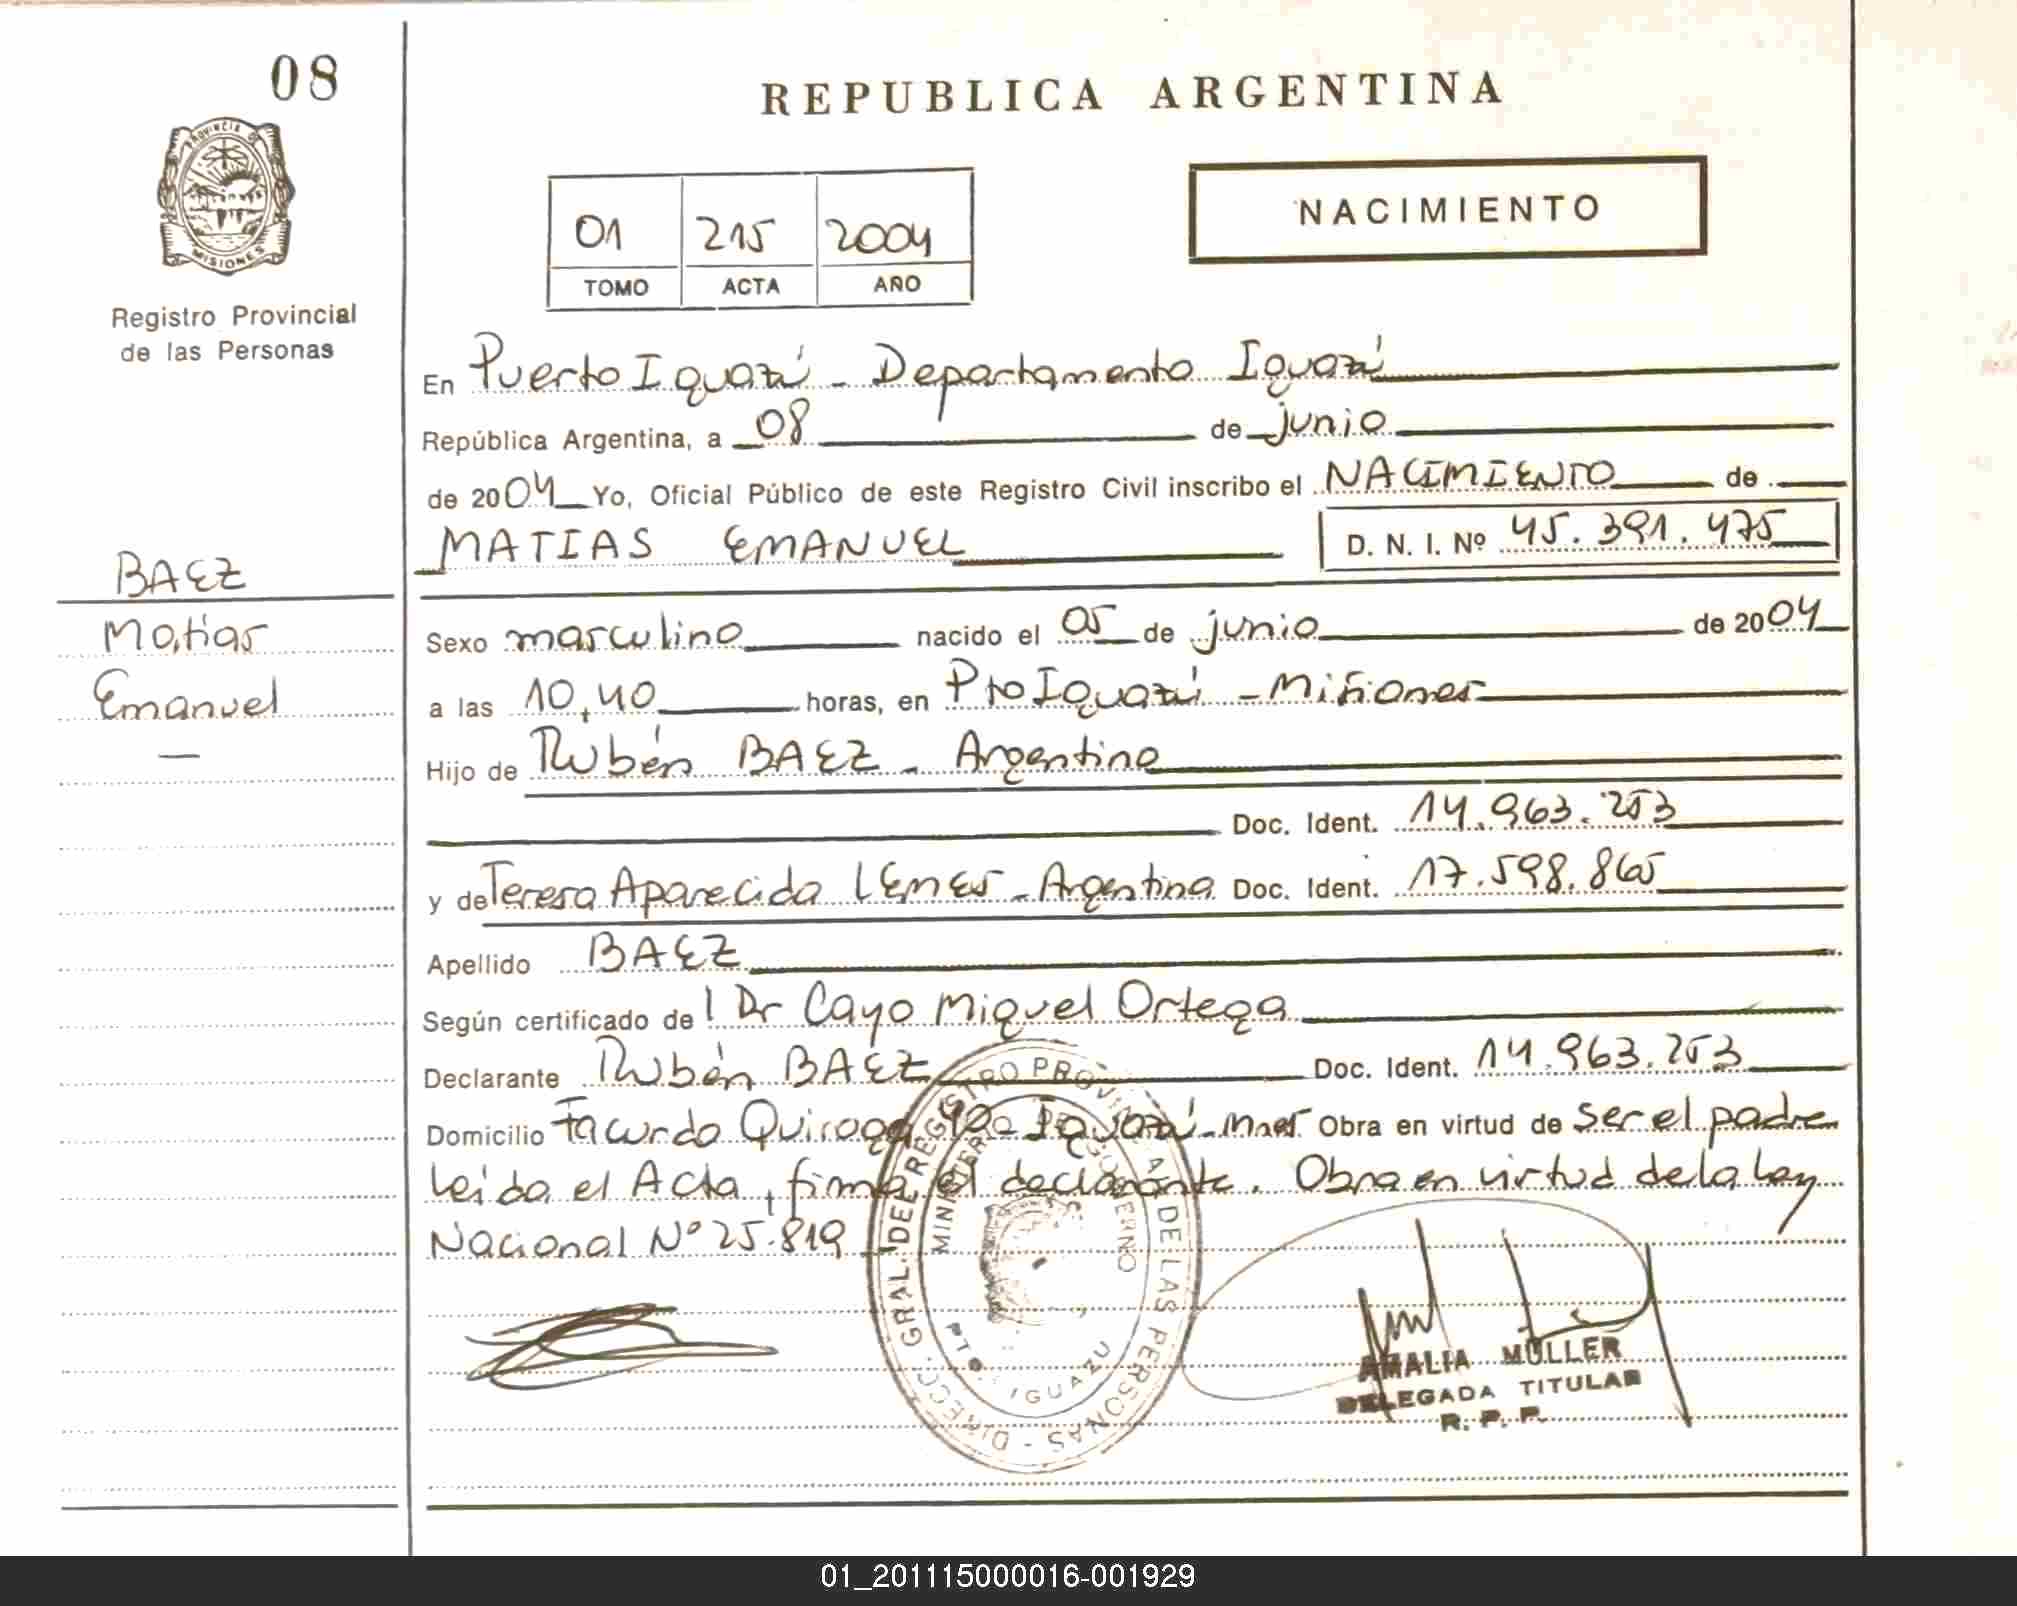 08
PROVINCIA DE
MISIONES
Registro Provincial
de las Personas
BAEZ
Matias
Emanuel
REPUBLICA ARGENTINA
01 215 2004
TOMO ACTA AÑO
NACIMIENTO
En Puerto Iguazú - Departamento Iguazú
República Argentina, a 08 de junio
de 2004 Yo, Oficial Público de este Registro Civil inscribo el NACIMIENTO de
MATIAS EMANUEL D. N. I. Nº 45.391.475
Sexo masculino nacido el 05 de junio de 2004
a las 10,40 horas, en Pto Iguazú - Misiones
Hijo de Rubén BAEZ - Argentino
Doc. Ident. 14.963.253
y de Teresa Aparecida LEMES - Argentina Doc. Ident. 17.598.865
Apellido BAEZ
Según certificado de l Dr Cayo Miguel Ortega
Declarante Rubén BAEZ Doc. Ident. 14.963.253
Domicilio Facundo Quiroga Iguazú - Mnes Obra en virtud de ser el padre
Leída el Acta, firma el declarante. Obra en virtud de la Ley
Nacional Nº 25.819
DIRECC. GRAL. DEL REGISTRO PROVINCIAL DE LAS PERSONAS
MINISTERIO DE GOBIERNO
PTO. IGUAZU
AMALIA MÜLLER
DELEGADA TITULAR
R. P. P.
01_201115000016-001929